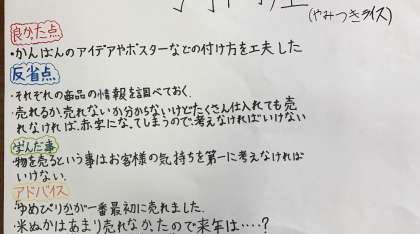 (やみつきライス)
良かった点
・かんばんのアイデアやポスターなどの付け方を工夫した
反省点
・それぞれの商品の情報を調べておく.
・売れるか、売れないか分からないけどたくさん仕入れても売
れなければ、赤字になってしまうので、考えなければいけない
学んだ事
・物を売るという事はお客様の気持ちを第一に考えなければ
いけない.
アドバイス
・ゆめぴりかが一番最初に売れました.
・米ぬかはあまり売れなかったので来年は・・・・?